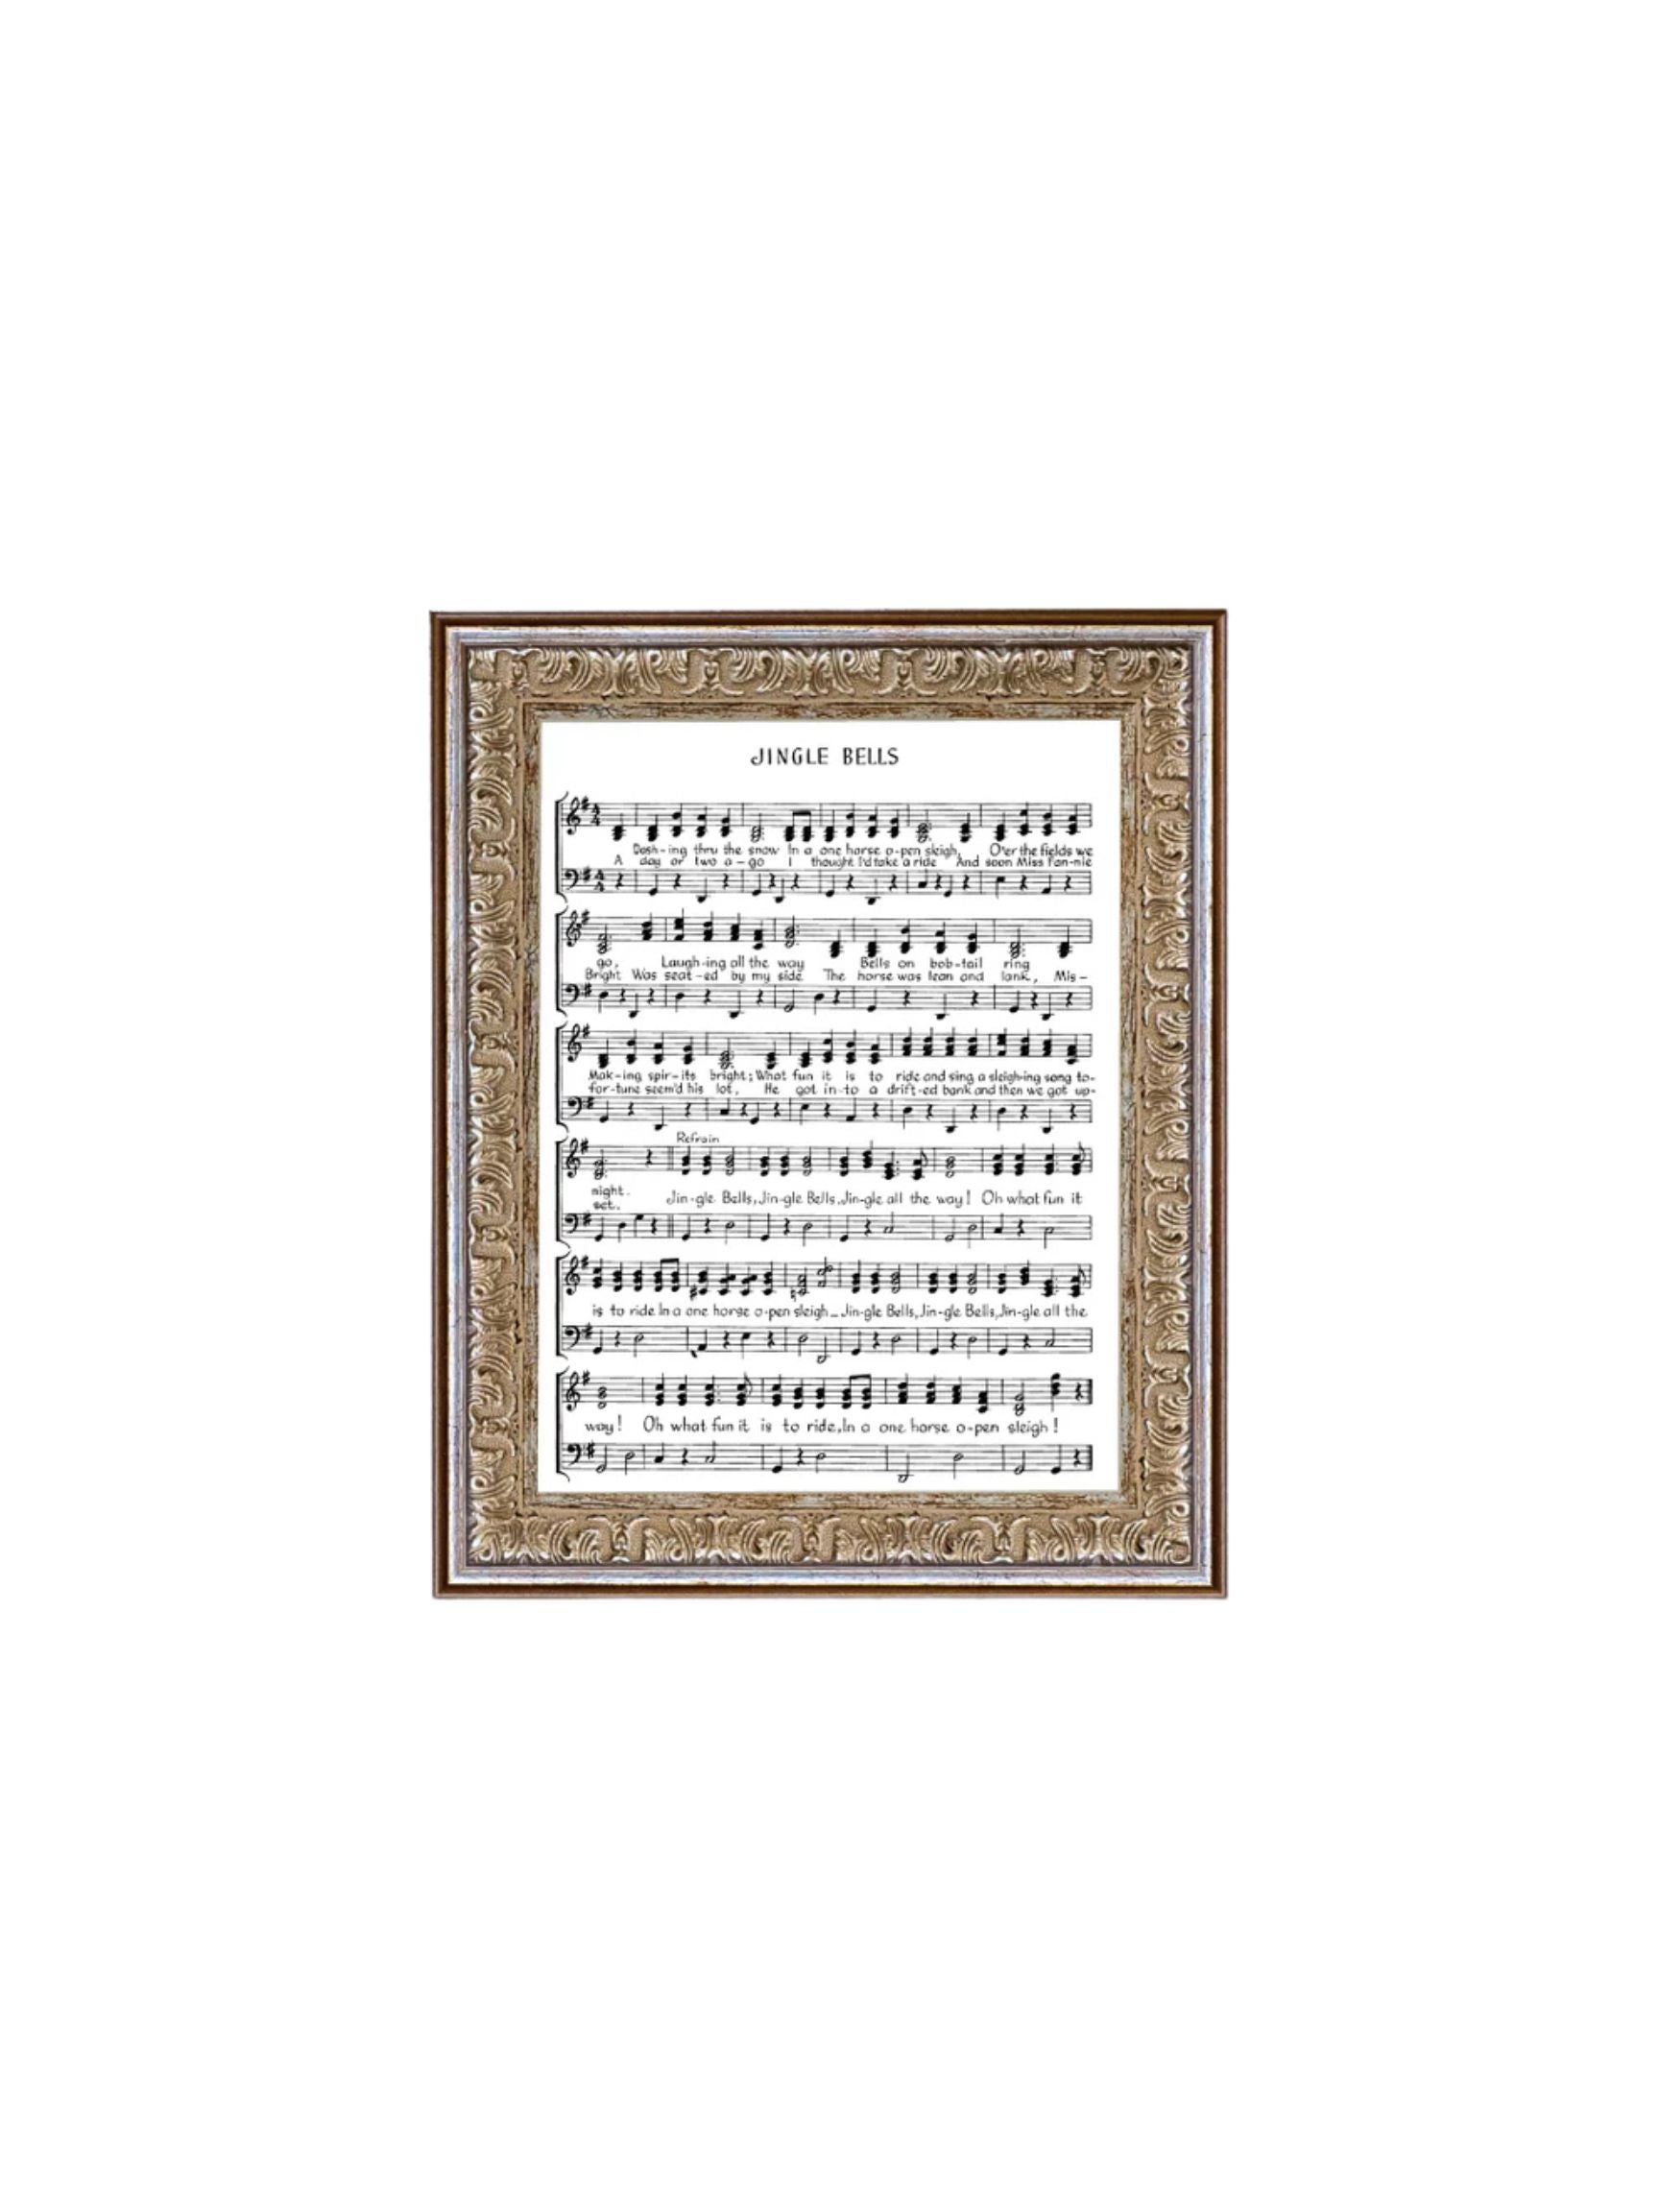 JINGLE BELLS
Dash-ing thru the snow In a one horse o-pen sleigh, O'er the fields we
A day or two a-go I thought I'd take a ride And soon Miss Fan-nie
go, Laugh-ing all the way Bells on bob-tail ring
Bright Was seat-ed by my side The horse was lean and lank, Mis-
Mak-ing spir-its bright; What fun it is to ride and sing a sleigh-ing song to-
for-tune seem'd his lot, He got in-to a drift-ed bank and then we got up-
Refrain
night. Jin-gle Bells, Jin-gle Bells, Jin-gle all the way! Oh what fun it
set.
is to ride In a one horse o-pen sleigh_ Jin-gle Bells, Jin-gle Bells, Jin-gle all the
way! Oh what fun it is to ride, In a one horse o-pen sleigh!